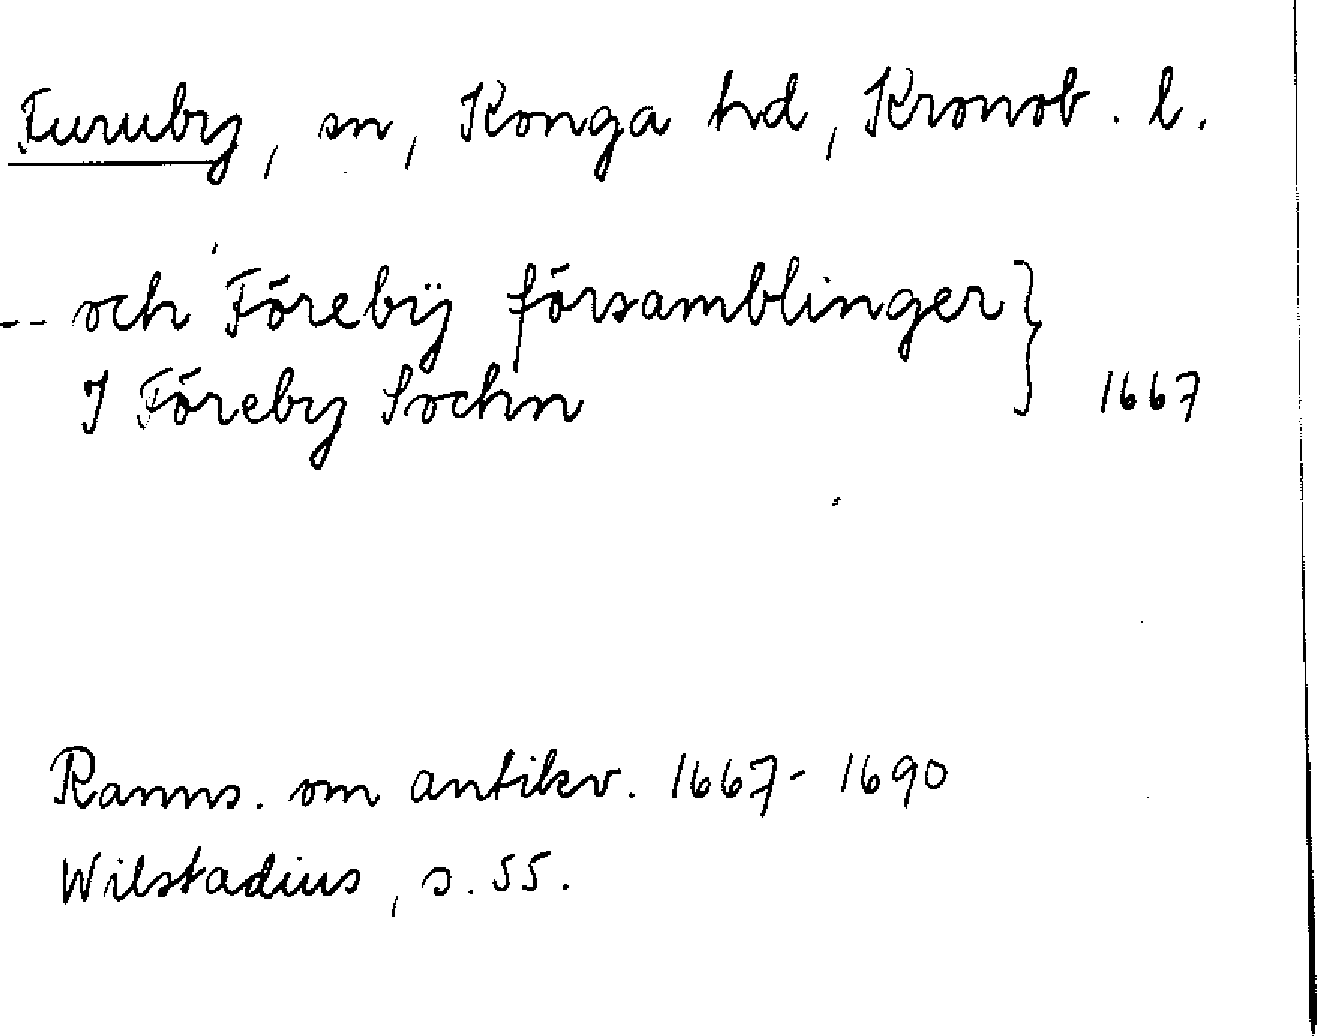 Furuby, sn, Konga hd, Kronob. l.
-- och Förebÿ församblinger }
I Föreby Sochn } 1667
Ranns. om antikv. 1667-1690
Wilstadius, s. 55.